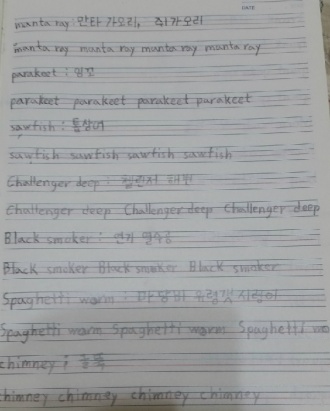 DATE
manta ray: 만타 가오리, 쥐가오리
manta ray manta ray manta ray manta ray
parakeet :
parakeet parakeet parakeet parakeet
sawfish : 톱상어
sawfish sawfish sawfish sawfish
Challenger deep :
Challenger deep Challenger deep Challenger deep
Black smoker : 연기
Black smoker Black smoker Black smoker
Spaghetti worm :
Spaghetti worm Spaghetti worm Spaghetti wo
chimney : 굴뚝
chimney chimney chimney chimney